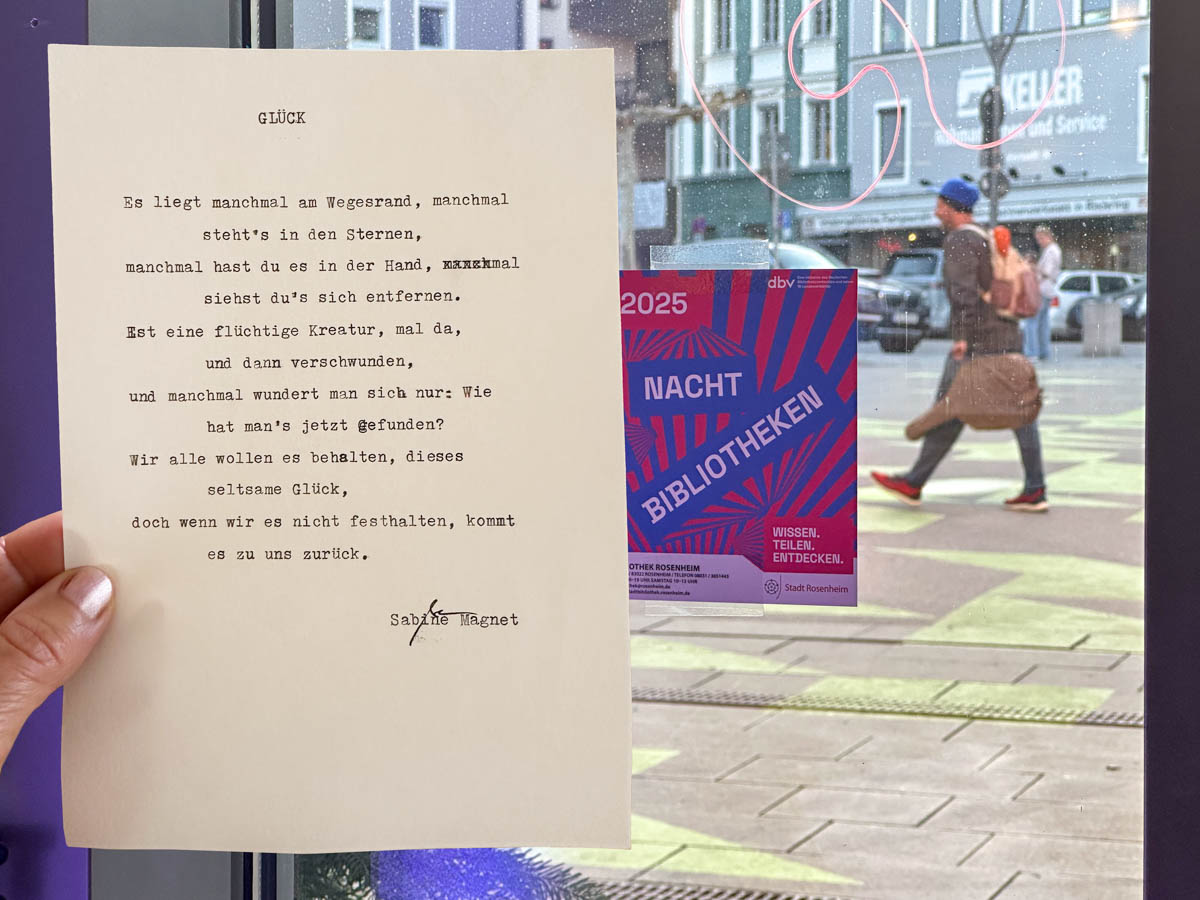 GLÜCK
Es liegt manchmal am Wegesrand, manchmal
steht's in den Sternen,
manchmal hast du es in der Hand, manchmal
siehst du's sich entfernen.
Est eine flüchtige Kreatur, mal da,
und dann verschwunden,
und manchmal wundert man sich nur: Wie
hat man's jetzt gefunden?
Wir alle wollen es behalten, dieses
seltsame Glück,
doch wenn wir es nicht festhalten, kommt
es zu uns zurück.
Sabine Magnet
2025
dbv
NACHT
BIBLIOTHEKEN
WISSEN.
TEILEN.
ENTDECKEN.
OTHEK ROSENHEIM
83022 ROSENHEIM / TELEFON 08031 / 3651443
UHR SAMSTAG 10–13 UHR
Stadt Rosenheim
KELLER
und Service